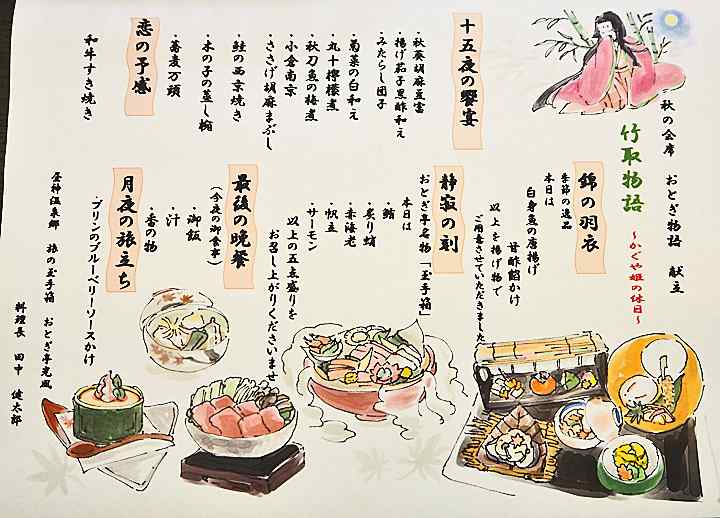 秋の会席　おとぎ物語　献立
竹取物語
～かぐや姫の休日～
十五夜の饗宴
・秋葵胡麻豆富
・揚げ茄子黒酢和え
・みたらし団子
・菊菜の白和え
・丸十檸檬煮
・秋刀魚の梅煮
・小倉南京
・ささげ胡麻まぶし
・鮭の西京焼き
・木の子の蒸し椀
・蕎麦万頭
恋の予感
和牛すき焼き
錦の羽衣
季節の逸品
本日は
白身魚の唐揚げ
甘酢餡かけ
以上を揚げ物で
ご用意させていただきました
静寂の刻
おとぎ亭名物「玉手箱」
本日は
・鮪
・炙り蛸
・赤海老
・帆立
・サーモン
以上の五点盛りを
お召し上がりくださいませ
最後の晩餐
（今夜の御食事）
・御飯
・汁
・香の物
月夜の旅立ち
・プリンのブルーベリーソースかけ
昼神温泉郷　旅の玉手箱　おとぎ亭光風
料理長　田中　健太郎